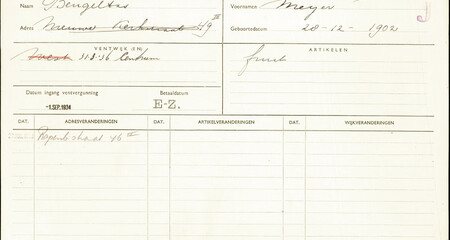 Naam Voornamen Meyer
Adres Nieuwe Kerkstraat
Geboortedatum 28-12-1902
VENTWIJK (EN)
31-8-36 Centrum
ARTIKELEN
fruit
Datum ingang ventvergunning
-1 SEP. 1934
Betaaldatum
E-Z.
DAT. ADRESVERANDERINGEN DAT. ARTIKELVERANDERINGEN DAT. WIJKVERANDERINGEN